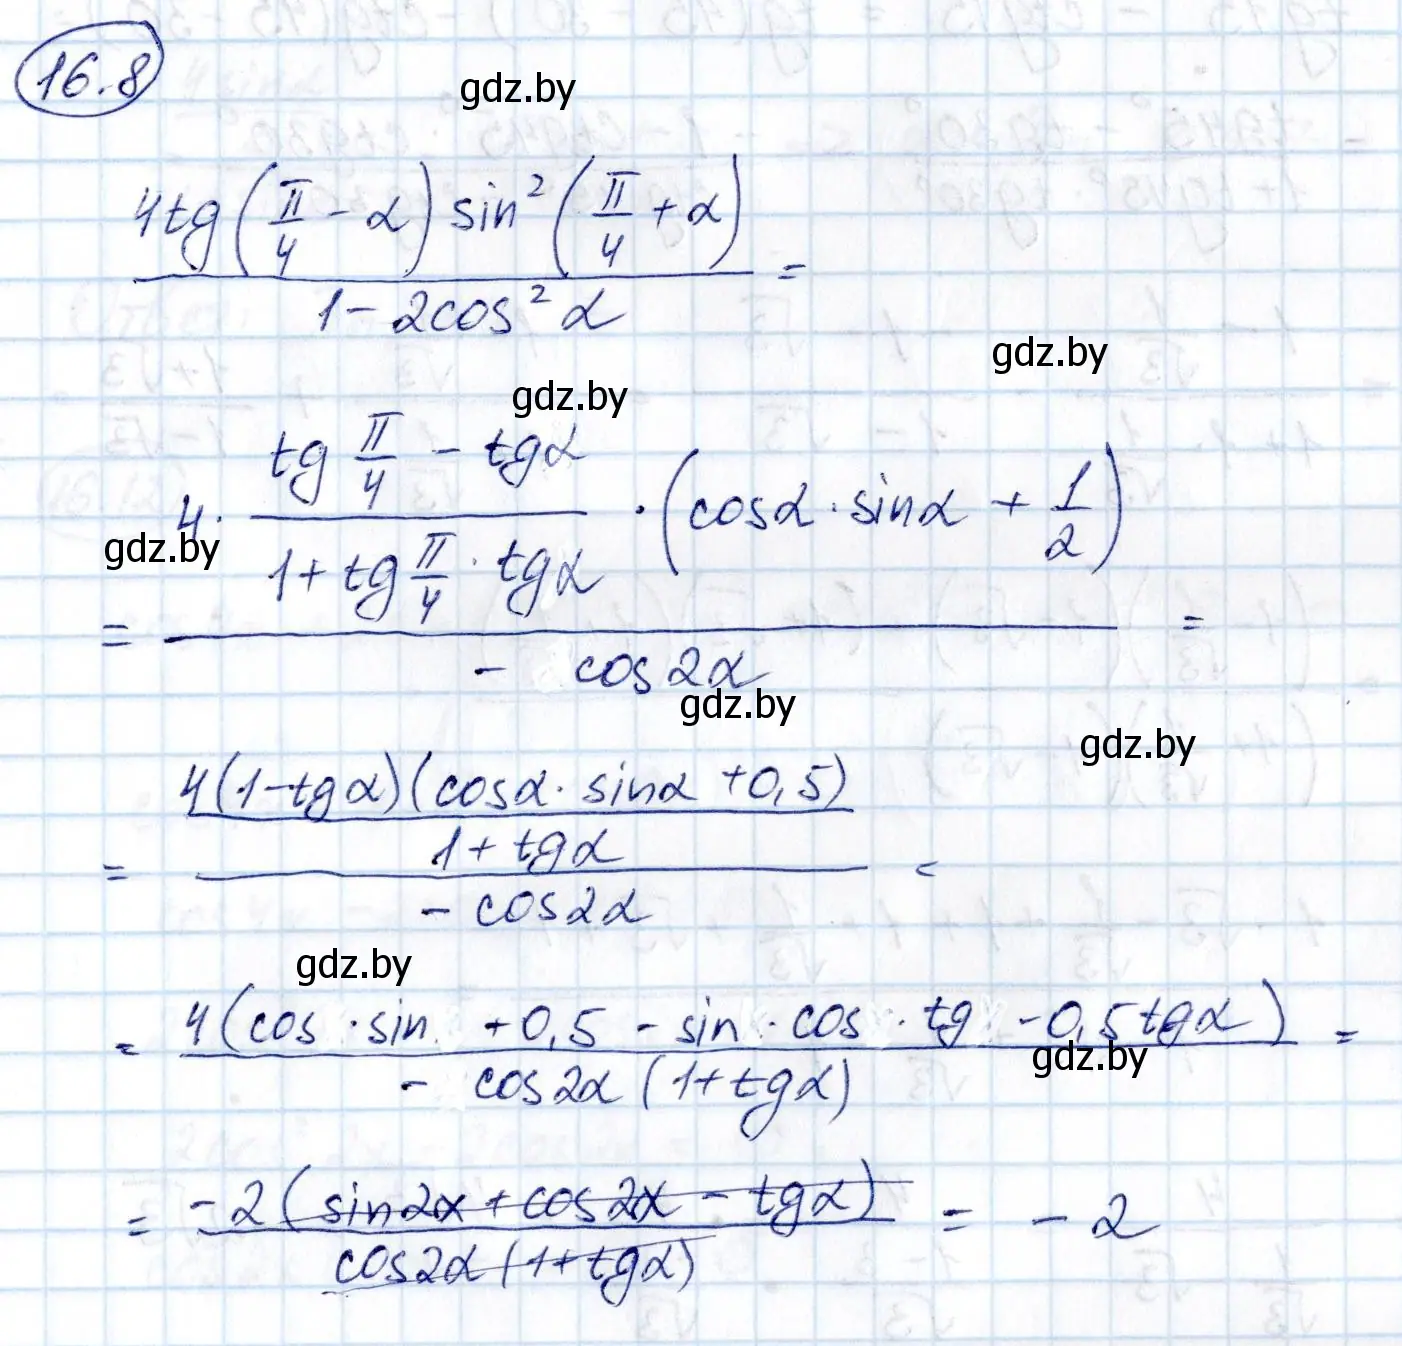 16.8
gdz.by
4tg(π/4 - α) sin²(π/4 + α) / 1 - 2cos²α =
gdz.by
gdz.by
= 4 · (tg π/4 - tgα) / (1 + tg π/4 · tgα) · (cosα · sinα + 1/2) / - cos2α =
gdz.by
gdz.by
gdz.by
= 4(1-tgα)(cosα · sinα + 0,5) / 1 + tgα / - cos2α =
gdz.by
= 4(cos · sin + 0,5 - sin · cos · tg - 0,5tgα) / - cos2α (1+tgα) =
gdz.by
= -2(sin2α + cos2α - tgα) / cos2α (1+tgα) = - 2